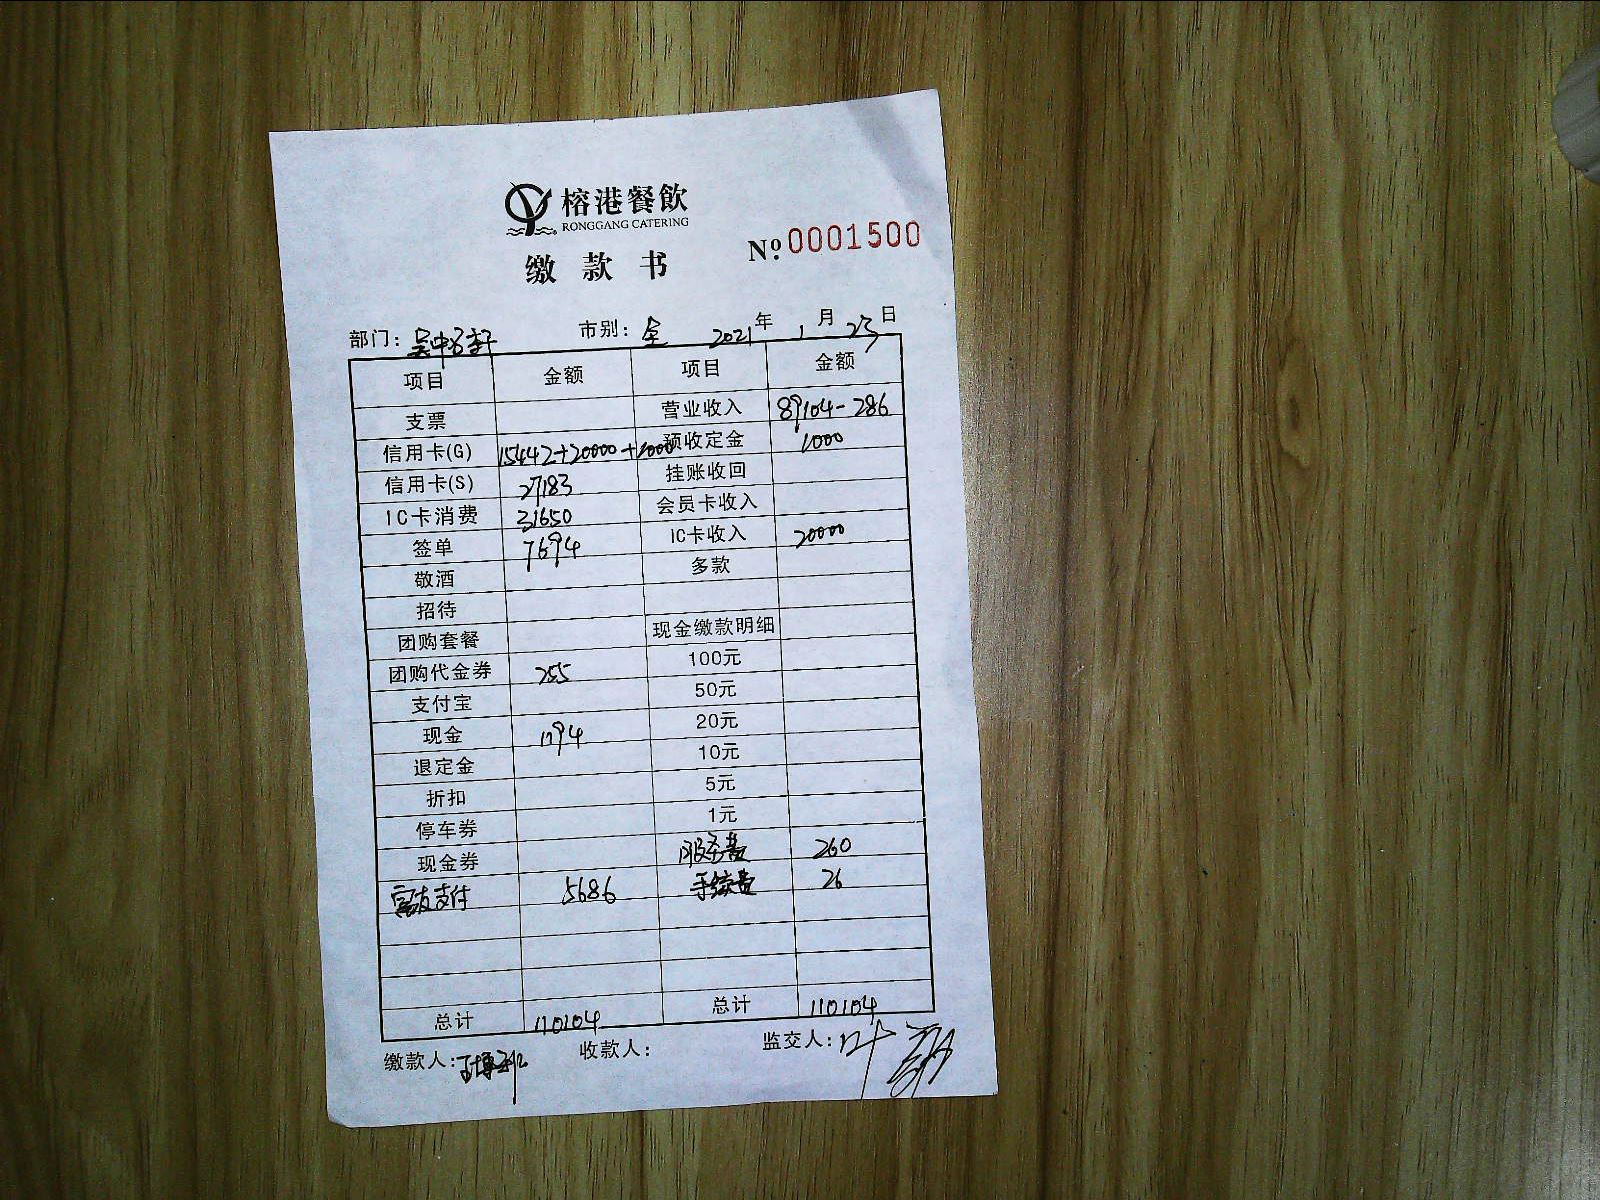 榕港餐飲
RONGGANG CATERING
缴款书
Nº 0001500
部门：吴中名轩 市别：全 2021年1月23日
项目 金额 项目 金额
支票 营业收入 89104-286
信用卡(G) 15442+20000+1000 预收定金 1000
信用卡(S) 27183 挂账收回
IC卡消费 31650 会员卡收入
签单 7694 IC卡收入 20000
敬酒 多款
招待
团购套餐 现金缴款明细
团购代金券 255 100元
支付宝 50元
现金 1194 20元
退定金 10元
折扣 5元
停车券 1元
现金券 服务费 260
富友支付 5686 手续费 26
总计 110104 总计 110104
缴款人： 收款人： 监交人：叶